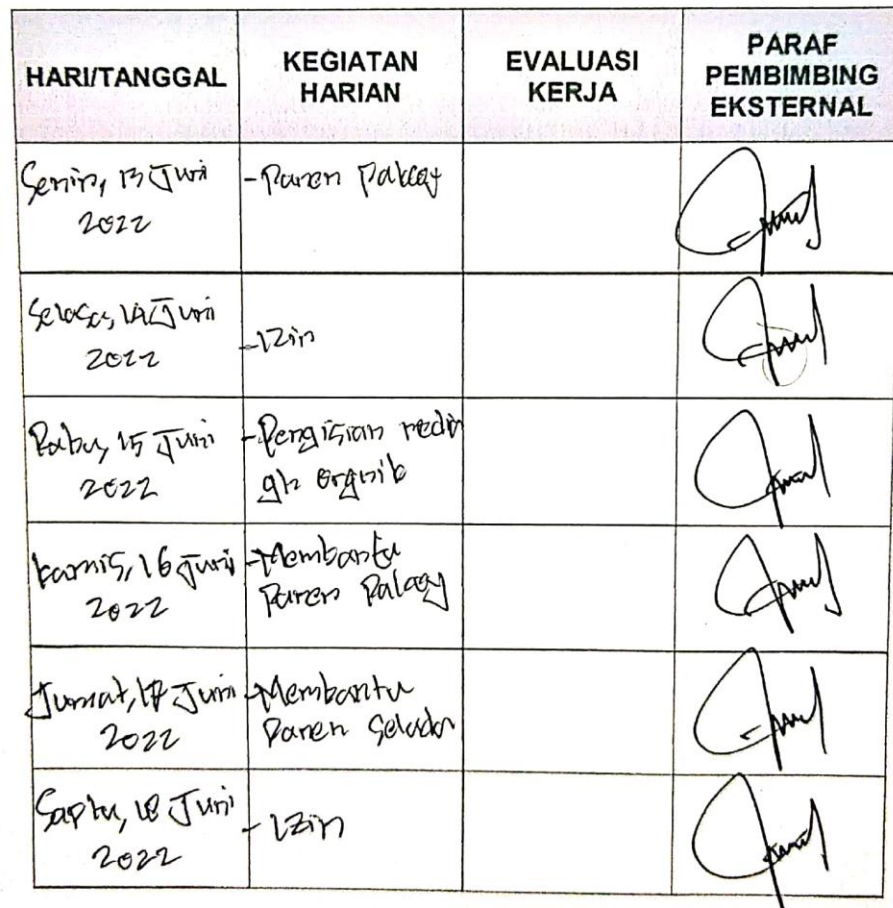 HARI/TANGGAL
KEGIATAN
HARIAN
EVALUASI
KERJA
PARAF
PEMBIMBING
EKSTERNAL
Senin, 13 Juni
2022
- Panen Pakcoy
Selasa, 14 Juni
2022
- Izin
Rabu, 15 Juni
2022
- Pengisian media
gh organik
Kamis, 16 Juni
2022
- Membantu
Panen Pakcoy
Jumat, 17 Juni
2022
- Membantu
Panen Selada
Saptu, 18 Juni
2022
- Izin